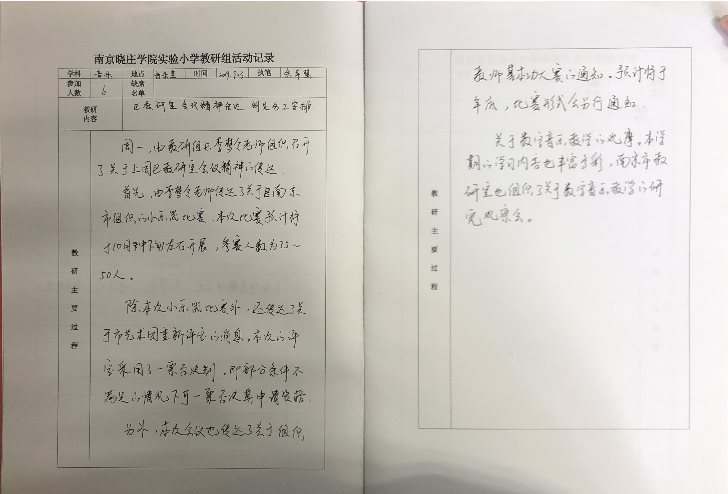 南京晓庄学院实验小学教研组活动记录
学科 音乐 地点 音乐室 时间 执笔
参加人数 6 缺席名单
教研内容 区教研室会议精神传达 制定分工安排
教研主要过程
周一,由教研组长李梦冬老师组织召开
了关于上周区教研室会议精神的传达
首先,由李梦冬老师传达了关于由南京
市组织的小乐器比赛,本次比赛预计将
于10月中下旬左右开展,参赛人数为35~
50人。
除本次小乐器比赛外,还传达了关
于市艺术团重新评定的消息,本次的评
定采用了一票否决制,即部分条件不
满足的情况下可一票否决其申请资格
另外,本次会议也传达了关于组织
教研主要过程
教师基本功大赛的通知。预计将于
年底,比赛形式会另行通知
关于数字音乐教学的观摩。本学
期的学习内容也丰富多彩,南京市教
研室也组织了关于数字音乐教学的研
究观察会。